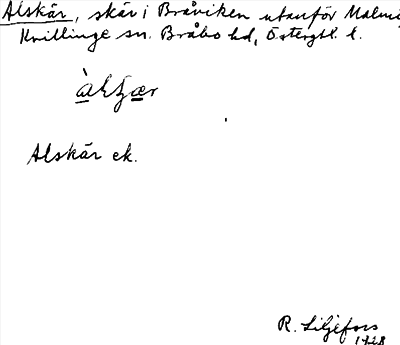 Alskär, skär i Bråviken utanför Malm
Kvillinge sn. Bråbo hd, Östergtl. l.
Alskär ek.
R. Liljefors
1928